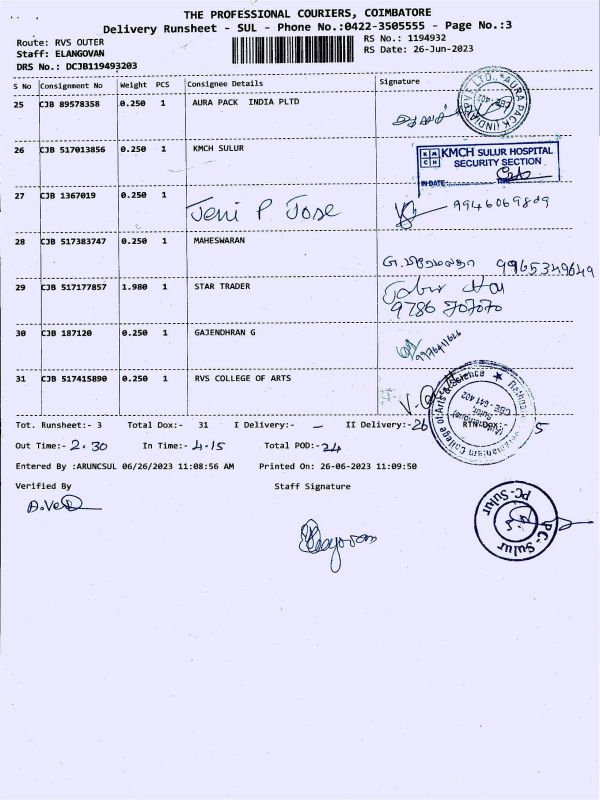 THE PROFESSIONAL COURIERS, COIMBATORE
Delivery Runsheet - SUL - Phone No.:0422-3505555 - Page No.:3
Route: RVS OUTER
RS No.: 1194932
Staff: ELANGOVAN
RS Date: 26-Jun-2023
DRS No.: DCJB119493203
S No Consignment No Weight PCS Consignee Details Signature
25 CJB 89578358 0.250 1 AURA PACK INDIA PLTD
AURA PACK (INDIA) PVT. LTD.,
26 CJB 517013856 0.250 1 KMCH SULUR
KMCH SULUR HOSPITAL
SECURITY SECTION
IN DATE:
27 CJB 1367019 0.250 1 Jeni P Jose 9946069809
28 CJB 517383747 0.250 1 MAHESWARAN
9965349649
29 CJB 517177857 1.980 1 STAR TRADER
9786 707070
30 CJB 187120 0.250 1 GAJENDHRAN G
31 CJB 517415890 0.250 1 RVS COLLEGE OF ARTS
College of Arts & Science
Sulur,
CBE - 641 402
Tot. Runsheet:- 3 Total Dox:- 31 I Delivery:- – II Delivery:- 26 RTN Dox:- 5
Out Time:- 2.30 In Time:- 4.15 Total POD:- 24
Entered By :ARUNCSUL 06/26/2023 11:08:56 AM Printed On: 26-06-2023 11:09:50
Verified By Staff Signature
PC-Sulur
PC-Sulur